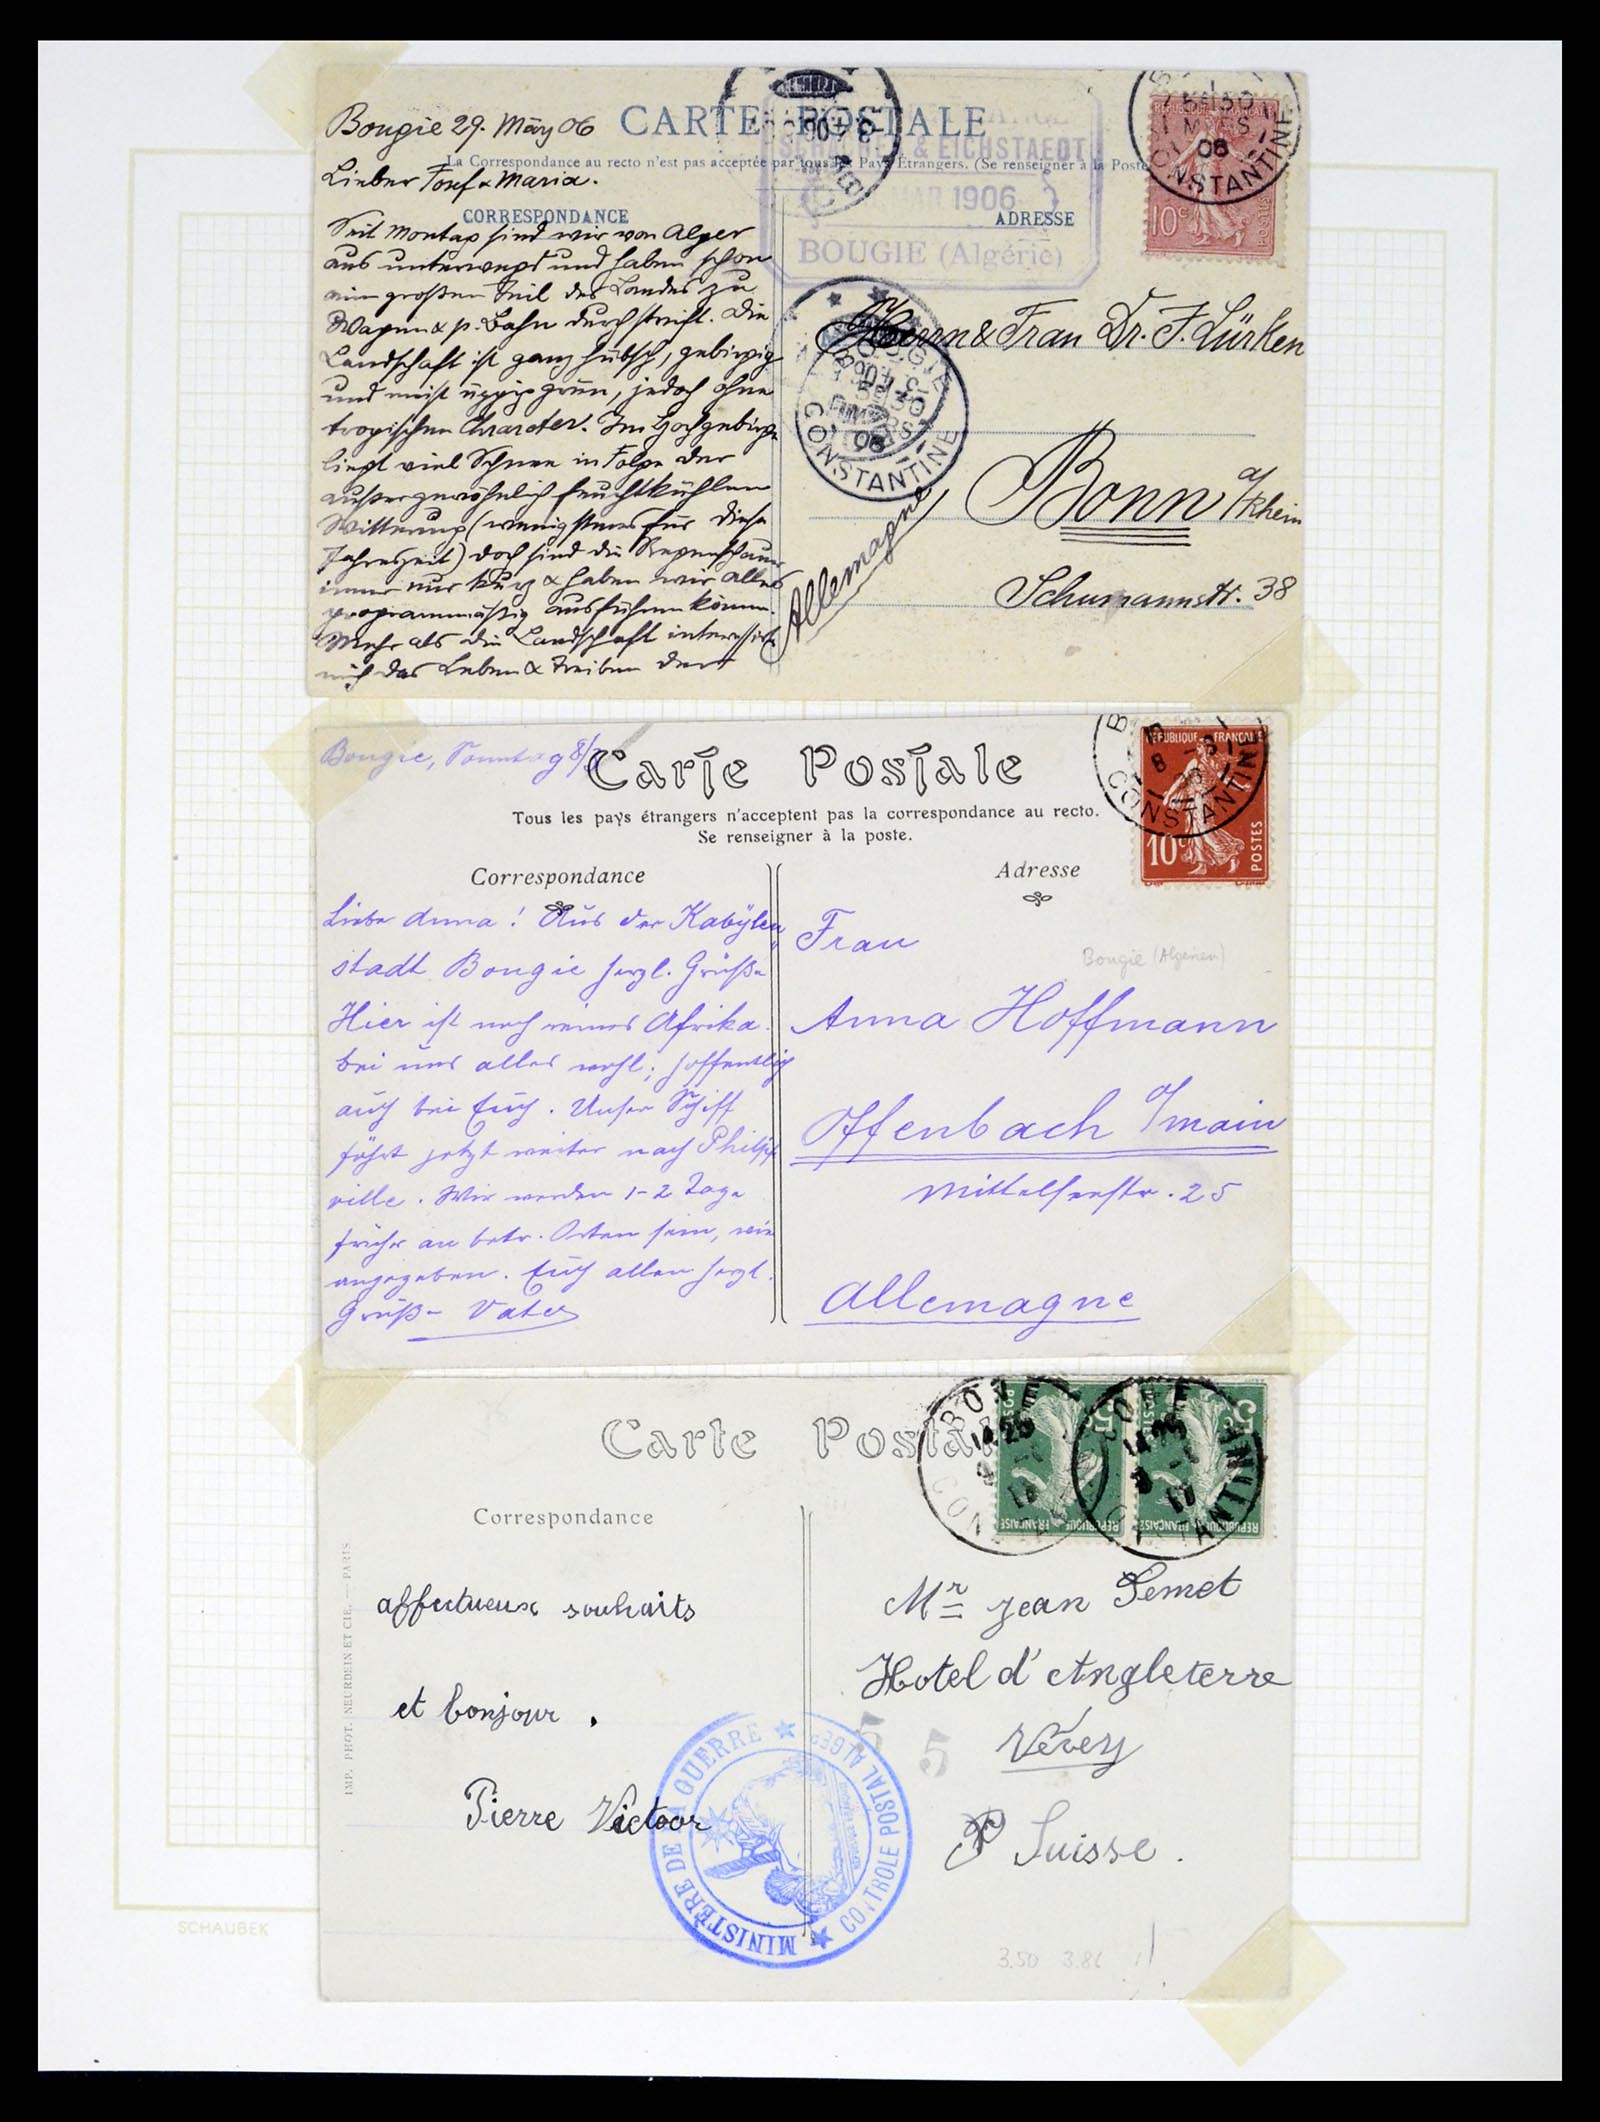 Bougie 29. März 06
CARTE POSTALE
La Correspondance au recto n'est pas acceptée par tous les Pays Étrangers. (Se renseigner à la Poste
Lieber Josef & Maria.
CORRESPONDANCE
ADRESSE
Seit Montag sind wir von Alger
aus unterwegs und haben schon
einen großen Teil des Landes zu
Wagen & p. Bahn durchstreift. Die
Landschaft ist ganz hübsch, gebirgig
und meist üppig grün, jedoch ohne
tropischen Character. Im Hochgebirge
liegt viel Schnee in Folge der
außergewöhnlich feuchtkühlen
Witterung (wenigstens für diese
Jahreszeit) doch sind die Regenschauer
immer nur kurz & haben wir alles
programmäßig ausführen können.
Mehr als die Landschaft interessirt
mich das Leben & Treiben der
& EICHSTAEDT
MAR 1906
BOUGIE (Algérie)
BOUGIE
CONSTANTINE
5 30
MARS
06
CONSTANTINE
10c
Herrn & Frau Dr. F. Lürken
Bonn a/Rhein
Schumannstr. 38
Allemagne
Bougie, Sonntag 8/3
Carte Postale
Tous les pays étrangers n'acceptent pas la correspondance au recto.
Se renseigner à la poste.
Correspondance
Adresse
REPUBLIQUE FRANÇAISE
10c
POSTES
CONSTANTINE
Liebe Anna! Aus der Kabylen
stadt Bougie herzl. Grüße
Hier ist noch reines Afrika.
bei uns alles wohl; hoffentlich
auch bei Euch. Unser Schiff
fährt jetzt weiter nach Philipp
ville. Wir werden 1-2 Tage
früher an betr. Orten sein, wie
angegeben. Euch allen herzl.
Grüße Vater
Frau
Bougie (Algerien)
Anna Hoffmann
Offenbach a/Main
Mittelseestr. 25
Allemagne
Carte Postale
Correspondance
BONE
14 25
CONSTANTINE
POSTES
5c
REPUBLIQUE FRANÇAISE
IMP. PHOT. NEURDEIN ET CIE. — PARIS
affectueux souhaits
et bonjour.
Pierre Victoor
Mr Jean Gemet
Hotel d'Angleterre
Vévey
Suisse.
5 5
MINISTÈRE DE LA GUERRE
CONTROLE POSTAL ALGER
3.50 3.86
SCHAUBEK